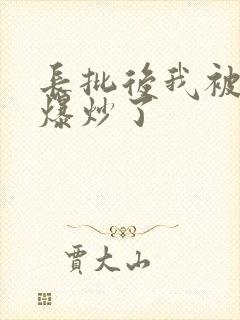 長批後我被
爆炒了
賈大山